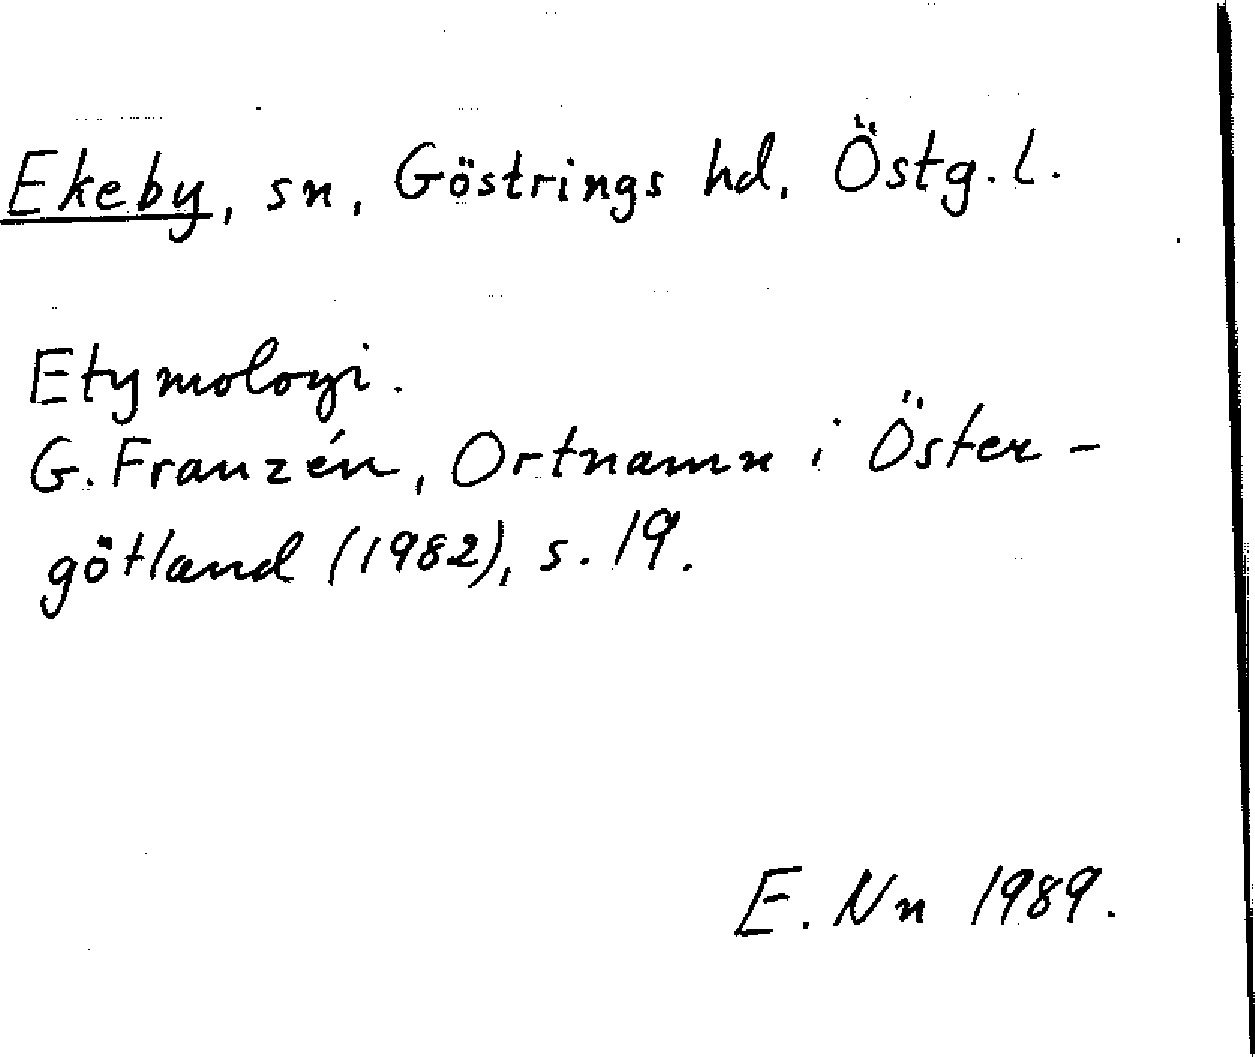 Ekeby, sn, Göstrings hd. Östg. l.
Etymologi.
G. Franzén, Ortnamn i Öster-
götland (1982), s. 19.
E. Nn 1989.